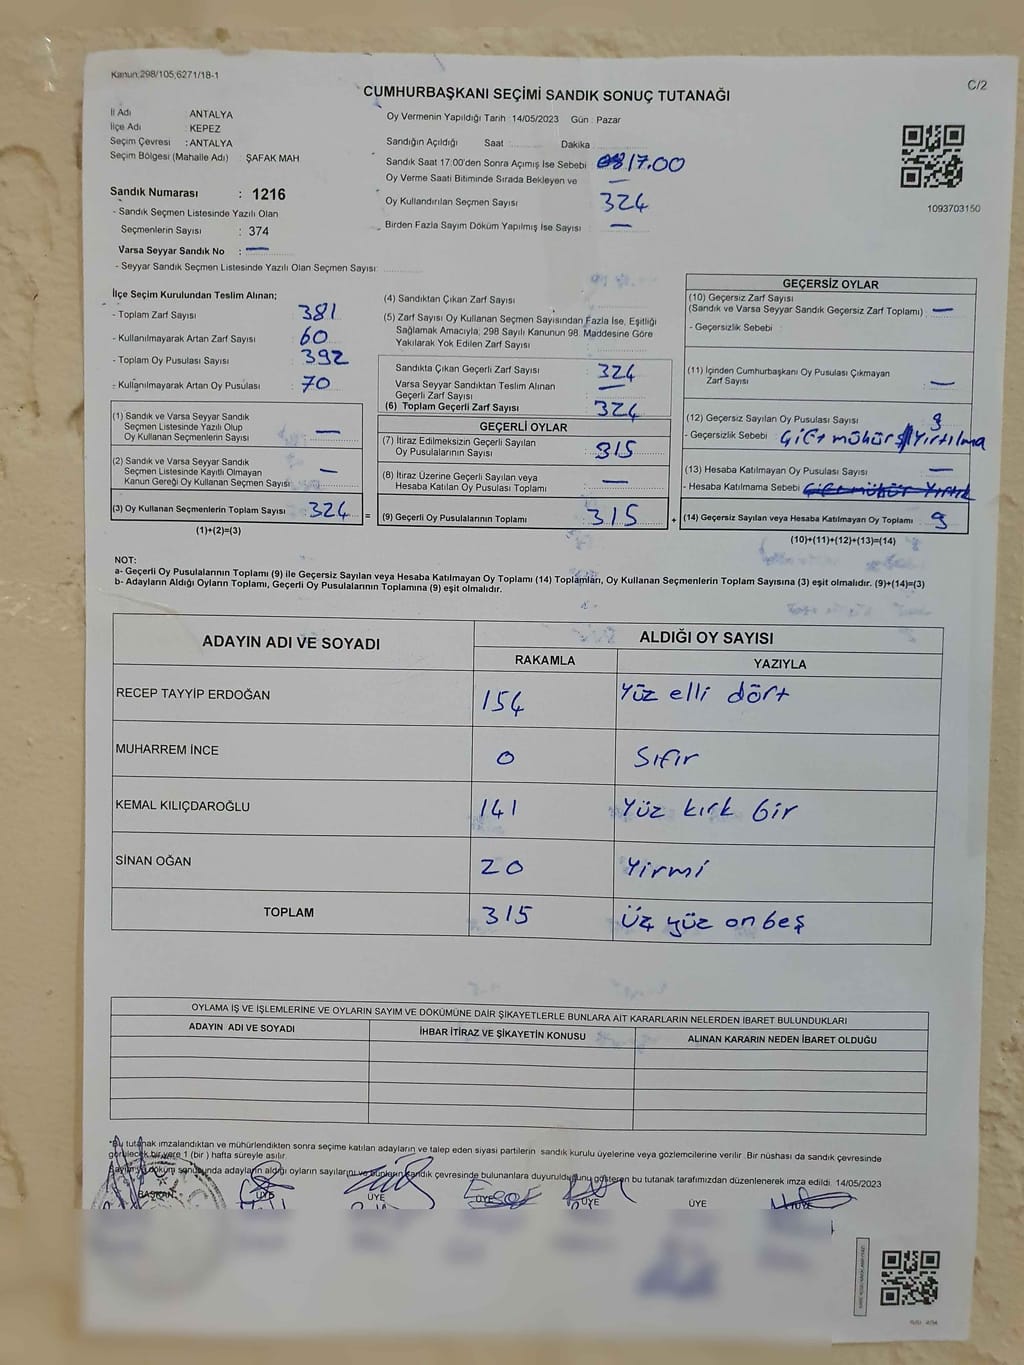 Kanun:298/105,6271/18-1
C/2
CUMHURBAŞKANI SEÇİMİ SANDIK SONUÇ TUTANAĞI
İl Adı : ANTALYA
İlçe Adı : KEPEZ
Seçim Çevresi : ANTALYA
Seçim Bölgesi (Mahalle Adı) : ŞAFAK MAH
Sandık Numarası : 1216
- Sandık Seçmen Listesinde Yazılı Olan
Seçmenlerin Sayısı : 374
Varsa Seyyar Sandık No : —
- Seyyar Sandık Seçmen Listesinde Yazılı Olan Seçmen Sayısı:
Oy Vermenin Yapıldığı Tarih :14/05/2023 Gün : Pazar
Sandığın Açıldığı Saat Dakika
Sandık Saat 17.00'den Sonra Açımış İse Sebebi 17.00
Oy Verme Saati Bitiminde Sırada Bekleyen ve —
Oy Kullandırılan Seçmen Sayısı 324
Birden Fazla Sayım Döküm Yapılmış İse Sayısı —
1093703150
İlçe Seçim Kurulundan Teslim Alınan;
- Toplam Zarf Sayısı 381
- Kullanılmayarak Artan Zarf Sayısı 60
- Toplam Oy Pusulası Sayısı 392
- Kullanılmayarak Artan Oy Pusulası 70
(1) Sandık ve Varsa Seyyar Sandık
Seçmen Listesinde Yazılı Olup
Oy Kullanan Seçmenlerin Sayısı —
(2) Sandık ve Varsa Seyyar Sandık
Seçmen Listesinde Kayıtlı Olmayan
Kanun Gereği Oy Kullanan Seçmen Sayısı —
(3) Oy Kullanan Seçmenlerin Toplam Sayısı 324 =
(1)+(2)=(3)
(4) Sandıktan Çıkan Zarf Sayısı
(5) Zarf Sayısı Oy Kullanan Seçmen Sayısından Fazla İse, Eşitliği
Sağlamak Amacıyla, 298 Sayılı Kanunun 98. Maddesine Göre
Yakılarak Yok Edilen Zarf Sayısı
Sandıkta Çıkan Geçerli Zarf Sayısı 324
Varsa Seyyar Sandıktan Teslim Alınan
Geçerli Zarf Sayısı —
(6) Toplam Geçerli Zarf Sayısı 324
GEÇERLİ OYLAR
(7) İtiraz Edilmeksizin Geçerli Sayılan
Oy Pusulalarının Sayısı 315
(8) İtiraz Üzerine Geçerli Sayılan veya
Hesaba Katılan Oy Pusulası Toplamı —
(9) Geçerli Oy Pusulalarının Toplamı 315 +
GEÇERSİZ OYLAR
(10) Geçersiz Zarf Sayısı
(Sandık ve Varsa Seyyar Sandık Geçersiz Zarf Toplamı) —
- Geçersizlik Sebebi :
(11) İçinden Cumhurbaşkanı Oy Pusulası Çıkmayan
Zarf Sayısı —
(12) Geçersiz Sayılan Oy Pusulası Sayısı 9
- Geçersizlik Sebebi : Çift mühür Yırtılma
(13) Hesaba Katılmayan Oy Pusulası Sayısı —
- Hesaba Katılmama Sebebi
(14) Geçersiz Sayılan veya Hesaba Katılmayan Oy Toplamı 9
(10)+(11)+(12)+(13)=(14)
NOT:
a- Geçerli Oy Pusulalarının Toplamı (9) ile Geçersiz Sayılan veya Hesaba Katılmayan Oy Toplamı (14) Toplamları, Oy Kullanan Seçmenlerin Toplam Sayısına (3) eşit olmalıdır. (9)+(14)=(3)
b- Adayların Aldığı Oyların Toplamı, Geçerli Oy Pusulalarının Toplamına (9) eşit olmalıdır.
ADAYIN ADI VE SOYADI ALDIĞI OY SAYISI
RAKAMLA YAZIYLA
RECEP TAYYİP ERDOĞAN 154 Yüz elli dört
MUHARREM İNCE 0 Sıfır
KEMAL KILIÇDAROĞLU 141 Yüz kırk bir
SİNAN OĞAN 20 Yirmi
TOPLAM 315 Üç yüz on beş
OYLAMA İŞ VE İŞLEMLERİNE VE OYLARIN SAYIM VE DÖKÜMÜNE DAİR ŞİKAYETLERLE BUNLARA AİT KARARLARIN NELERDEN İBARET BULUNDUKLARI
ADAYIN ADI VE SOYADI İHBAR İTİRAZ VE ŞİKAYETİN KONUSU ALINAN KARARIN NEDEN İBARET OLDUĞU
*Bu tutanak imzalandıktan ve mühürlendikten sonra seçime katılan adayların ve talep eden siyasi partilerin sandık kurulu üyelerine veya gözlemcilerine verilir. Bir nüshası da sandık çevresinde
görülecek bir yere 1 (bir ) hafta süreyle asılır.
Sayım ve döküm sonusunda adayların aldığı oyların sayılarını ve bunların sandık çevresinde bulunanlara duyurulduğunu gösteren bu tutanak tarafımızdan düzenlenerek imza edildi. 14/05/2023
BAŞKAN ÜYE ÜYE ÜYE ÜYE ÜYE ÜYE